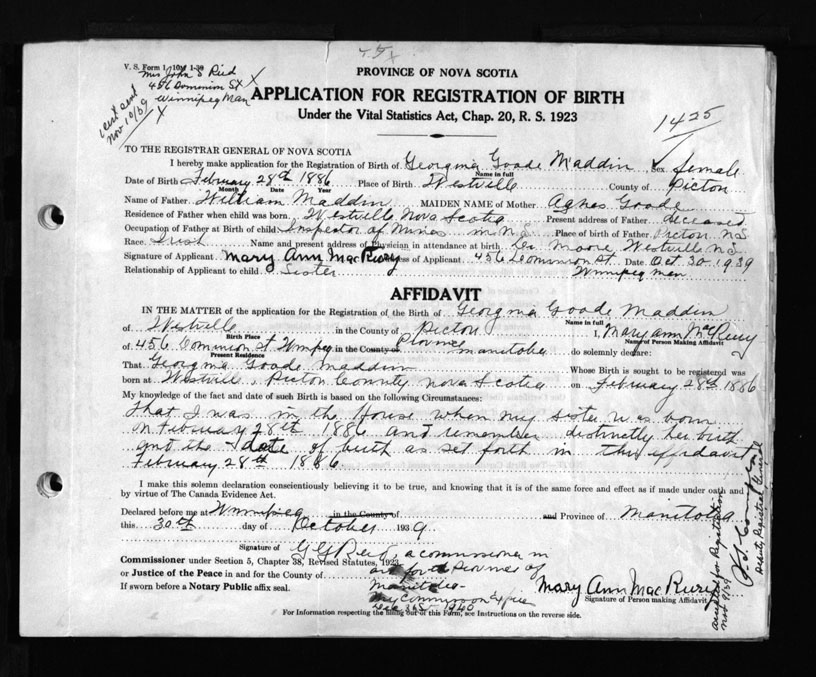 V. S. Form 1, 10M 1-39
Mrs John S Reid
456 Dominion St
Winnipeg Man
cert sent
Nov 10/39
PROVINCE OF NOVA SCOTIA
APPLICATION FOR REGISTRATION OF BIRTH
Under the Vital Statistics Act, Chap. 20, R. S. 1923
1425
TO THE REGISTRAR GENERAL OF NOVA SCOTIA
I hereby make application for the Registration of Birth of Georgina Goode Maddin Sex female
Name in full
Date of Birth February 28th 1886 Place of Birth Westville County of Pictou
Month Date Year
Name of Father William Maddin MAIDEN NAME of Mother Agnes Goode
Residence of Father when child was born Westville Nova Scotia Present address of Father deceased
Occupation of Father at Birth of child Inspector of Mines in N.S. Place of birth of Father Pictou N.S
Race Irish Name and present address of Physician in attendance at birth Dr Moore, Westville N.S
Signature of Applicant Mary Ann MacRury Address of Applicant 456 Dominion St. Date Oct 30 1939
Relationship of Applicant to child Sister Winnipeg Man
AFFIDAVIT
IN THE MATTER of the application for the Registration of the Birth of Georgina Goode Maddin
Name in full
of Westville in the County of Pictou I, Mary Ann McRury
Birth Place Name of Person making Affidavit
of 456 Dominion St Winnipeg in the County of Province Manitoba do solemnly declare:
Present Residence
That Georgina Goode Maddin Whose Birth is sought to be registered was
born at Westville, Pictou County Nova Scotia on February 28th 1886
My knowledge of the fact and date of such Birth is based on the following Circumstances:
That I was in the House when my sister was born
on February 28th 1886 and remember distinctly her birth
and the date of birth as set forth in this affidavit
February 28th 1886
I make this solemn declaration conscientiously believing it to be true, and knowing that it is of the same force and effect as if made under oath and
by virtue of The Canada Evidence Act.
Declared before me at Winnipeg in the County of and Province of Manitoba
this 30th day of October 1939
Signature of G G Reid, a commissioner in
Commissioner under Section 5, Chapter 38, Revised Statutes, 1923 and for the Province of
or Justice of the Peace in and for the County of Manitoba
If sworn before a Notary Public affix seal. My Commission Expires
1940
Mary Ann MacRury
Signature of Person making Affidavit
For Information respecting the filling out of this Form, see Instructions on the reverse side.
accepted for Registration
Nov 9/39
Deputy Registrar General